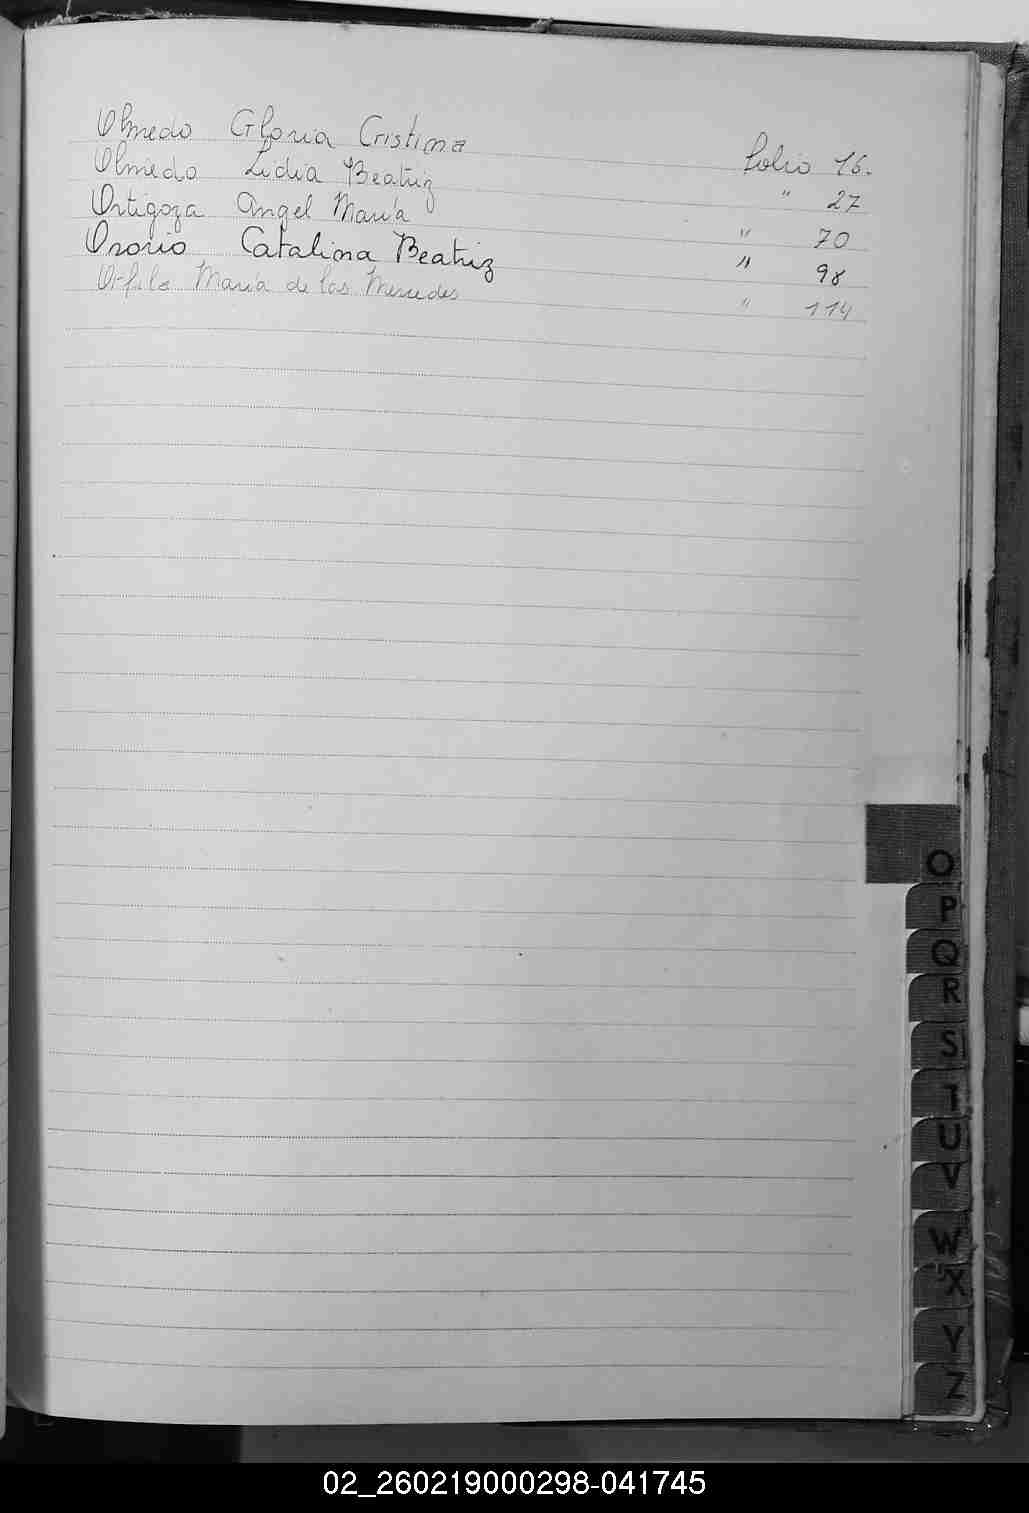 Olmedo Gloria Cristina folio 16.
Olmedo Lidia Beatriz " 27
Ortigoza Angel María " 70
Osorio Catalina Beatriz " 98
Orfila María de las Mercedes " 114
O
P
Q
R
S
T
U
V
W
X
Y
Z
02_260219000298-041745